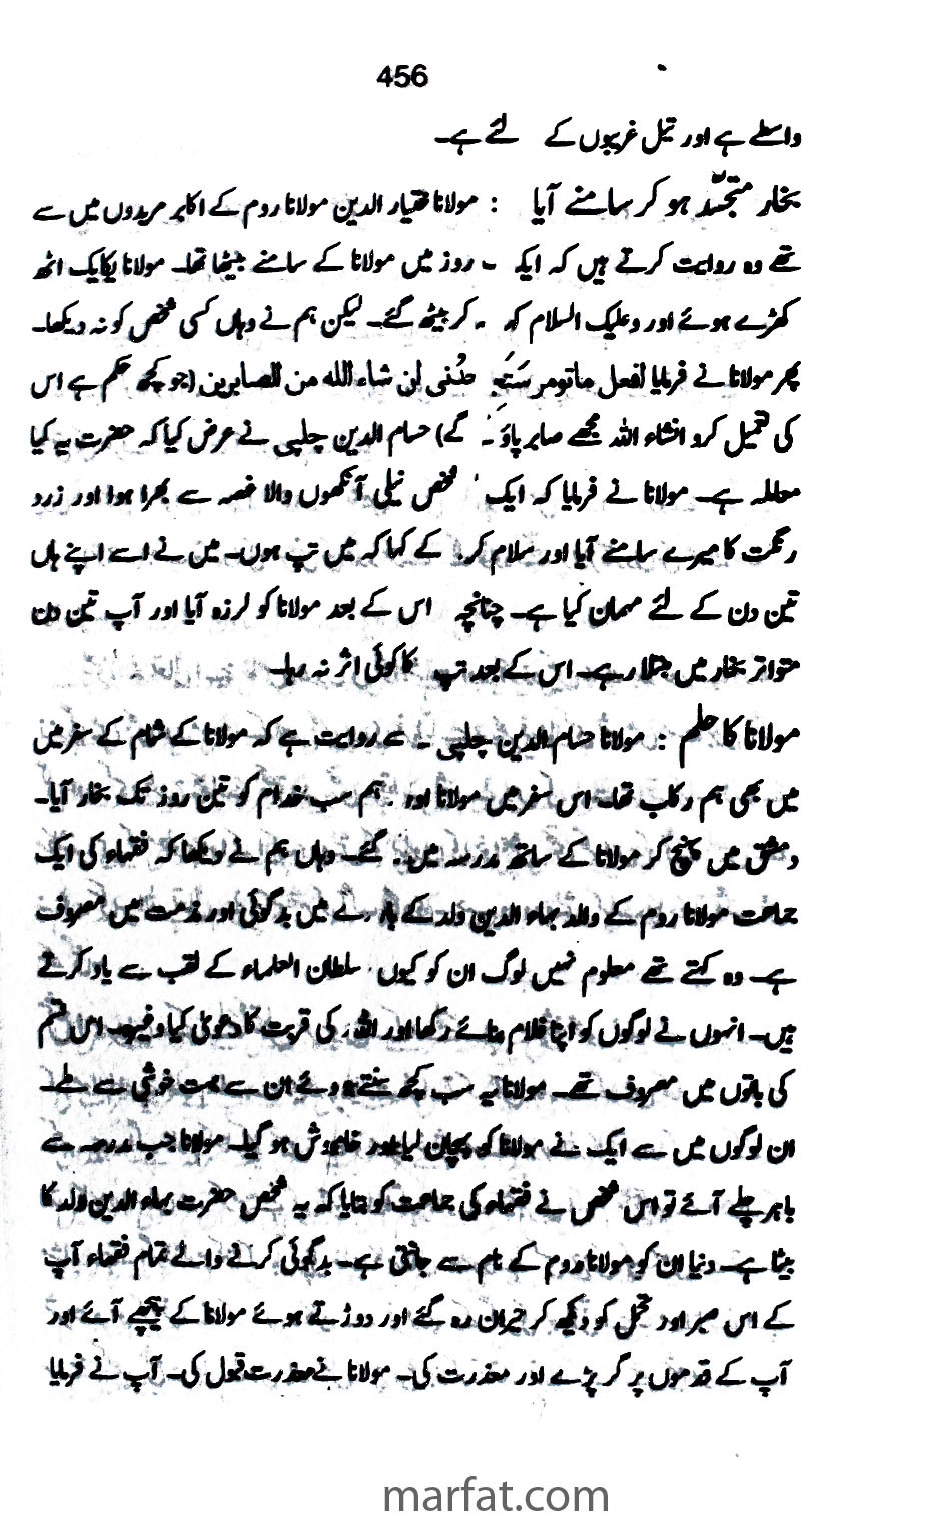 456
واسطے ہے اور تیل غریبوں کے لئے ہے۔
بخار متجسّد ہو کر سامنے آیا : مولانا اختیار الدین مولانا روم کے اکابر مریدوں میں سے
تھے وہ روایت کرتے ہیں کہ ایک روز میں مولانا کے سامنے بیٹھا تھا۔ مولانا یکایک اٹھ
کھڑے ہوئے اور وعلیک السلام کہہ کر بیٹھ گئے۔ لیکن ہم نے وہاں کسی شخص کو نہ دیکھا۔
پھر مولانا نے فرمایا افعل ماتومر ستجدنی ان شاء اللہ من الصابرین (جو کچھ حکم ہے اس
کی تعمیل کرو انشاء اللہ مجھے صابر پاؤ گے) حسام الدین چلپی نے عرض کیا کہ حضرت یہ کیا
معاملہ ہے۔ مولانا نے فرمایا کہ ایک شخص نیلی آنکھوں والا غصہ سے بھرا ہوا اور زرد
رنگت کا میرے سامنے آیا اور سلام کر کے کہا کہ میں تپ ہوں۔ میں نے اسے اپنے ہاں
تین دن کے لئے مہمان کیا ہے۔ چنانچہ اس کے بعد مولانا کو لرزہ آیا اور آپ تین دن
متواتر بخار میں مبتلا رہے۔ اس کے بعد تپ کا کوئی اثر نہ رہا۔
مولانا کا حلم : مولانا حسام الدین چلپی سے روایت ہے کہ مولانا کے شام کے سفر میں
میں بھی ہم رکاب تھا۔ اس سفر میں مولانا اور ہم سب خدام کو تین روز تک بخار آیا۔
دمشق میں پہنچ کر مولانا کے ساتھ مدرسہ میں گئے۔ وہاں ہم نے دیکھا کہ فقہاء کی ایک
جماعت مولانا روم کے والد بہاء الدین ولد کے بارے میں بدگوئی اور مذمت میں مصروف
ہے۔ وہ کہتے تھے معلوم نہیں لوگ ان کو کیوں سلطان العلماء کے لقب سے یاد کرتے
ہیں۔ انہوں نے لوگوں کو اپنا غلام بنائے رکھا اور اللہ کی قربت کا دعویٰ کیا وغیرہ۔ اس قسم
کی باتوں میں مصروف تھے۔ مولانا یہ سب کچھ سنتے ہوئے ان سے بہت خوشی سے ملے۔
ان لوگوں میں سے ایک نے مولانا کو پہچان لیا اور خاموش ہو گیا۔ مولانا جب مدرسہ سے
باہر چلے آئے تو اس شخص نے فقہاء کی جماعت کو بتایا کہ یہ شخص حضرت بہاء الدین ولد کا
بیٹا ہے۔ دنیا ان کو مولانا روم کے نام سے جانتی ہے۔ بدگوئی کرنے والے تمام فقہاء آپ
کے اس صبر اور تحمل کو دیکھ کر حیران رہ گئے اور دوڑتے ہوئے مولانا کے پیچھے آئے اور
آپ کے قدموں پر گر پڑے اور معذرت کی۔ مولانا نے معذرت قبول کی۔ آپ نے فرمایا
marfat.com